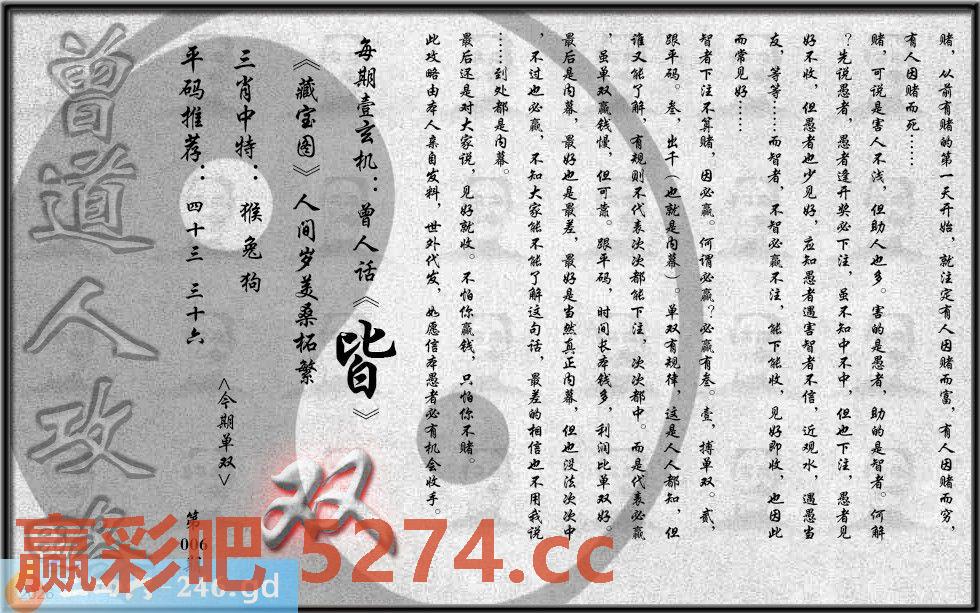 赌，从前有赌的第一天开始，就注定有人因赌而富，有人因赌而穷，
有人因赌而死……
赌，可说是害人不浅，但助人也多。害的是愚者，助的是智者。何解
？先说愚者，愚者逢开奖必下注，虽不知中不中，但也下注，愚者见
好不收，但愚者也少见好，应知愚者遇害智者不信，近观水，遇愚当
友，等等……而智者，不智必赢不注，能下能收，见好即收，也因此
而常见好……
智者下注不算赌，因必赢。何谓必赢？必赢有叁。壹，搏单双。贰，
跟平码。叁，出千（也就是内幕）。单双有规律，这是人人都知，但
谁又能了解，有规则不代表次次都能下注，次次都中。而是代表必赢
，虽单双赢钱慢，但可靠。跟平码，时间长本钱多，利润比单双好。
最后是内幕，最好也是最差，最好是当然真正内幕，但也没法次次中
，不过也必赢，不知大家能不能了解这句话，最差的相信也不用我说
……到处都是内幕。
最后还是对大家说，见好就收。不怕你赢钱，只怕你不赌。
此攻略由本人亲自发料，世外代发，如愿信本愚者必有机会收手。
每期壹玄机：曾人话《皆》
《藏宝图》人间岁美桑柘繁
三肖中特：猴兔狗
平码推荐：四十三 三十六
<今期单双>
双
第006
曾道人攻
赢彩吧 5274.cc
-246.gd